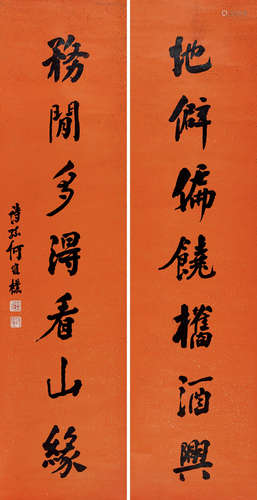 地僻偏饒攜酒興
務閒多得看山緣
詩孫何維樸